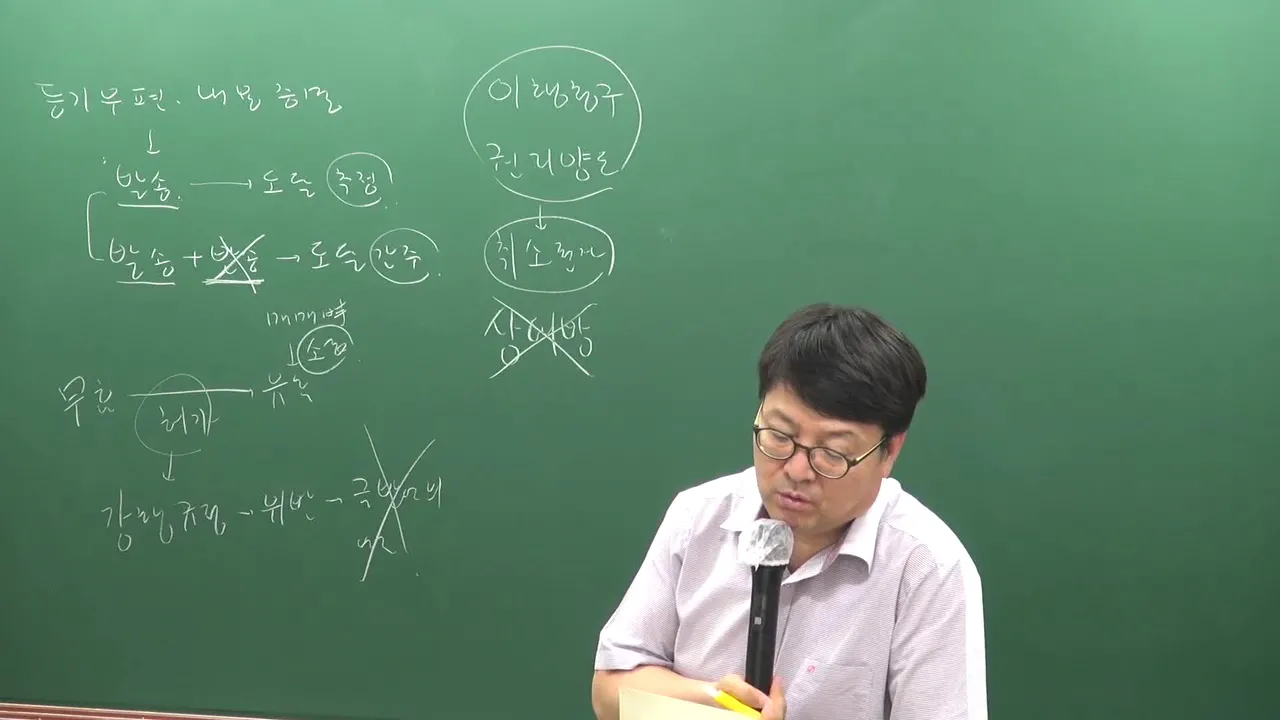 등기우편. 내용증명
↓
발송. → 도달 추정.
발송 + 반송 → 도달 간주.
매매계약
↓ 소급.
무효 → 유효
허가
↓
강행규정 → 위반 →
이행청구
권리양도
↓
취소권자
상대방